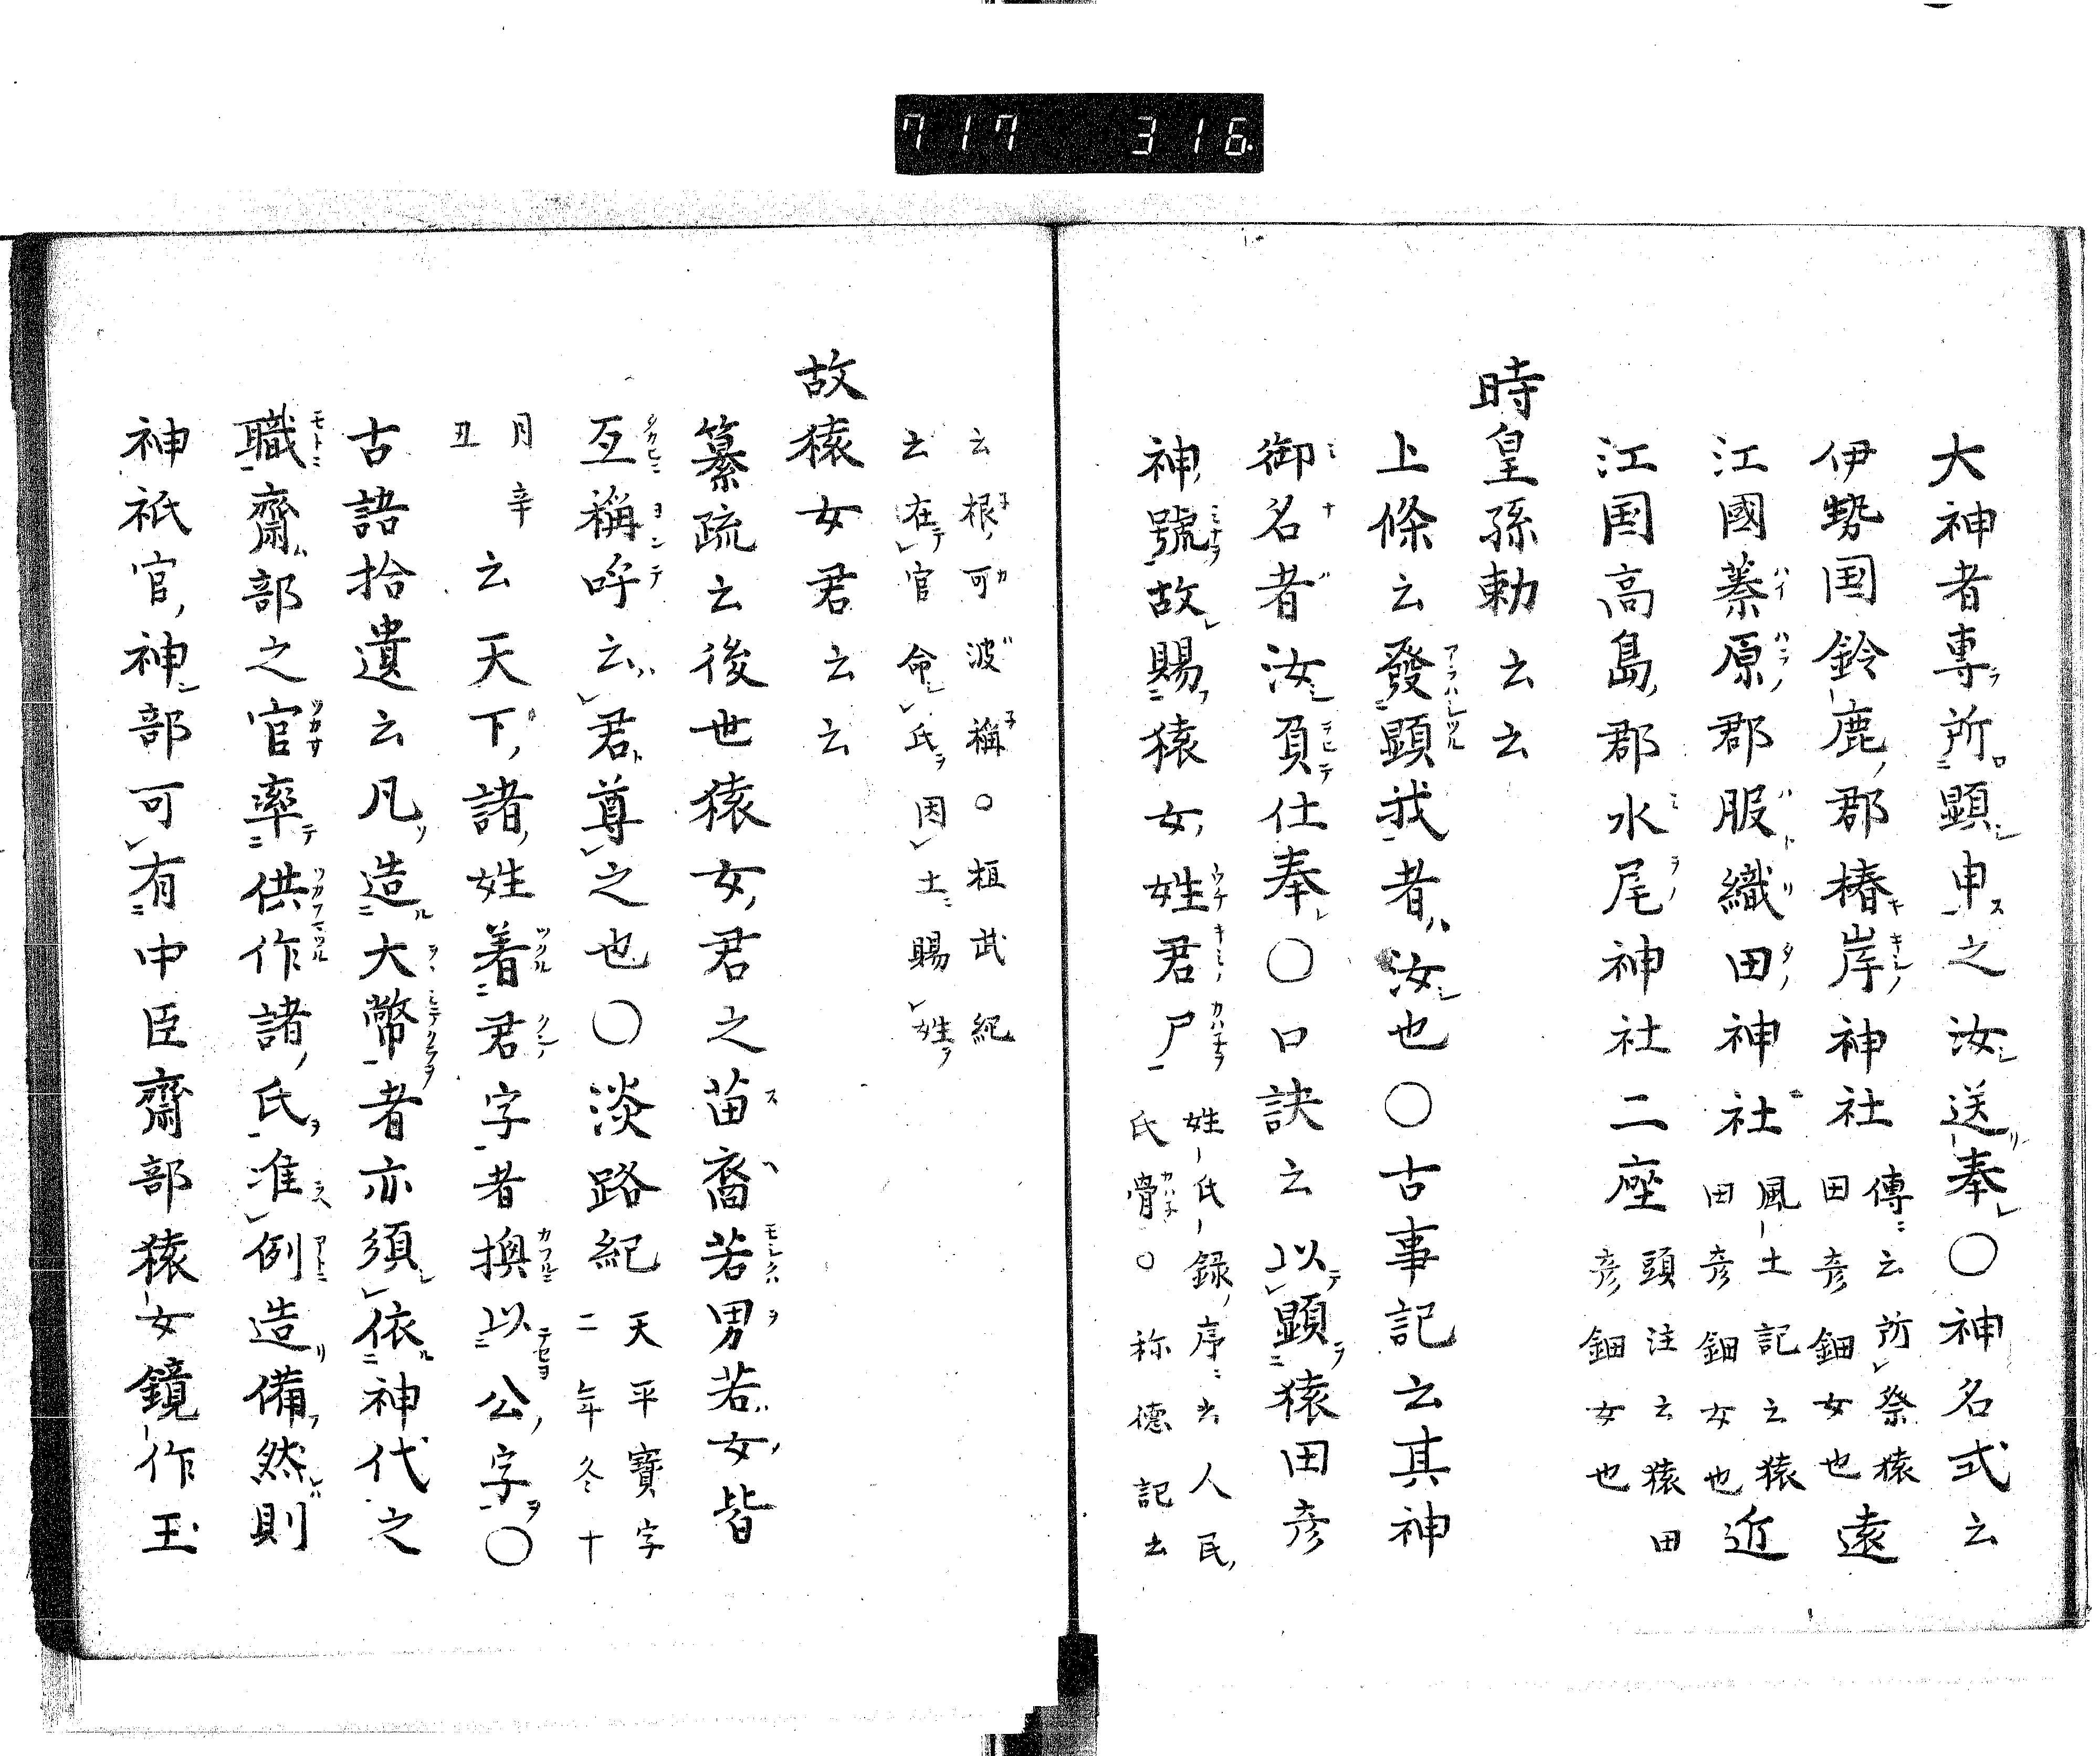 717 316
大神者専所顕申之汝送奉〇神名式云
伊勢国鈴鹿郡椿岸神社
傳云所祭猿
田彦鈿女也
遠
江國蓁原郡服織田神社
風土記云猿
田彦鈿女也
近
江国高島郡水尾神社二座
頭注云猿田
彦鈿女也
時皇孫勅云云
上條云發顕我者汝也〇古事記云其神
御名者汝負仕奉〇口訣云以顕猿田彦
神號故賜猿女姓君尸
姓氏録序云人民
氏骨〇称徳記云
云根可波稱〇桓武紀
云在官命氏因土賜姓
故猿女君云云
纂疏云後世猿女君之苗裔若男若女皆
互稱呼云君尊之也〇淡路紀
天平寶字
二年冬十
月辛
丑
云天下諸姓着君字者換以公字〇
古語拾遺云凡造大幣者亦須依神代之
職齋部之官率供作諸氏准例造備然則
神祇官神部可有中臣齋部猿女鏡作玉